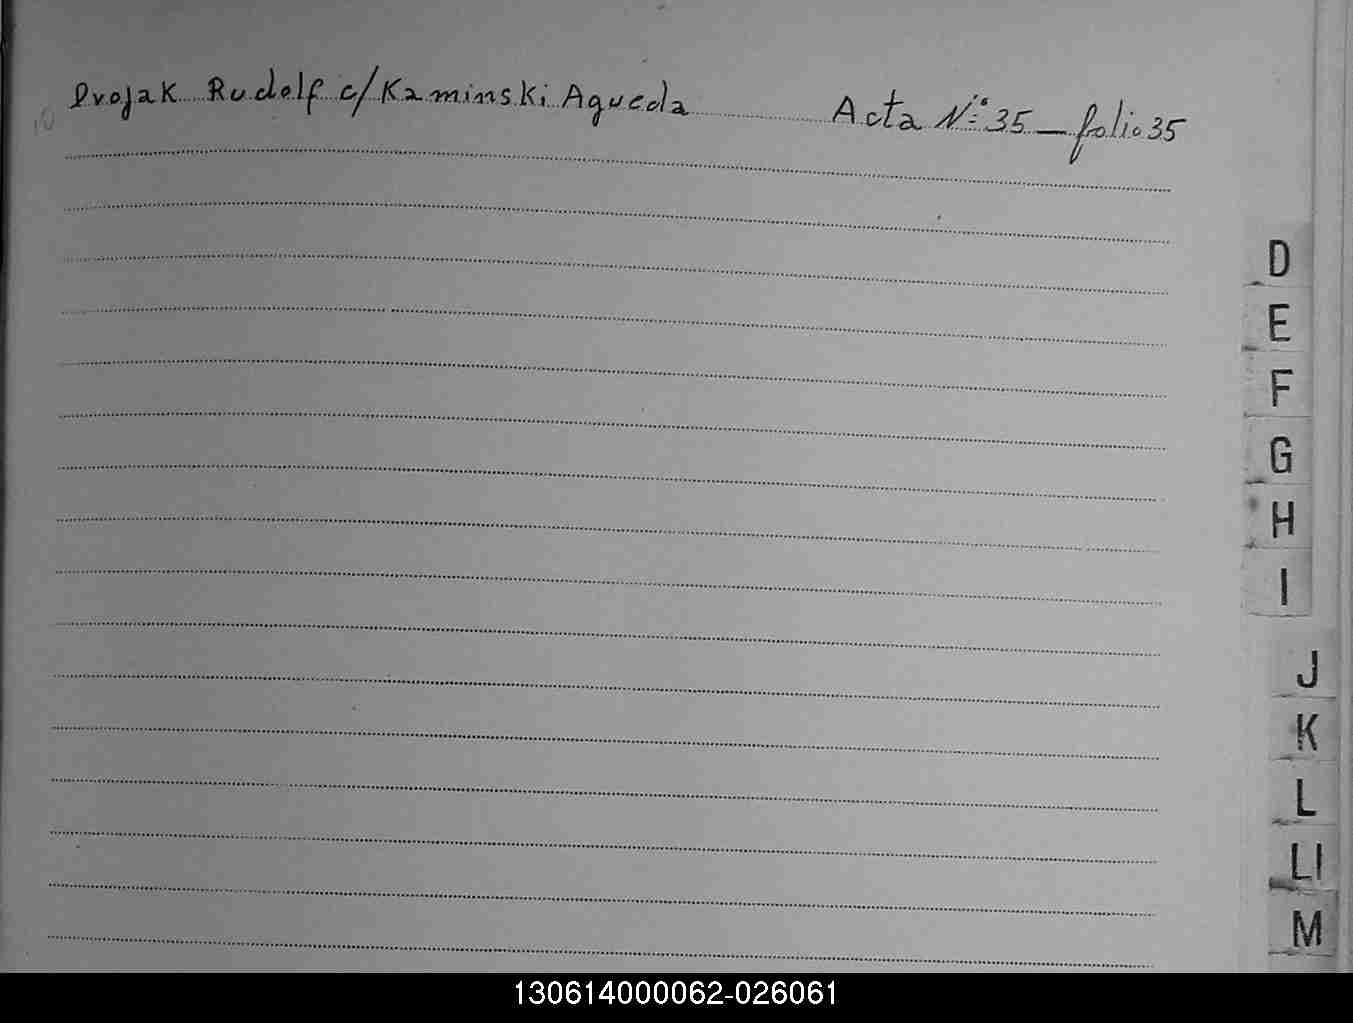 Dvojak Rudolf c/ Kaminski Agueda Acta Nº 35 - folio 35
D
E
F
G
H
I
J
K
L
Ll
M
130614000062-026061